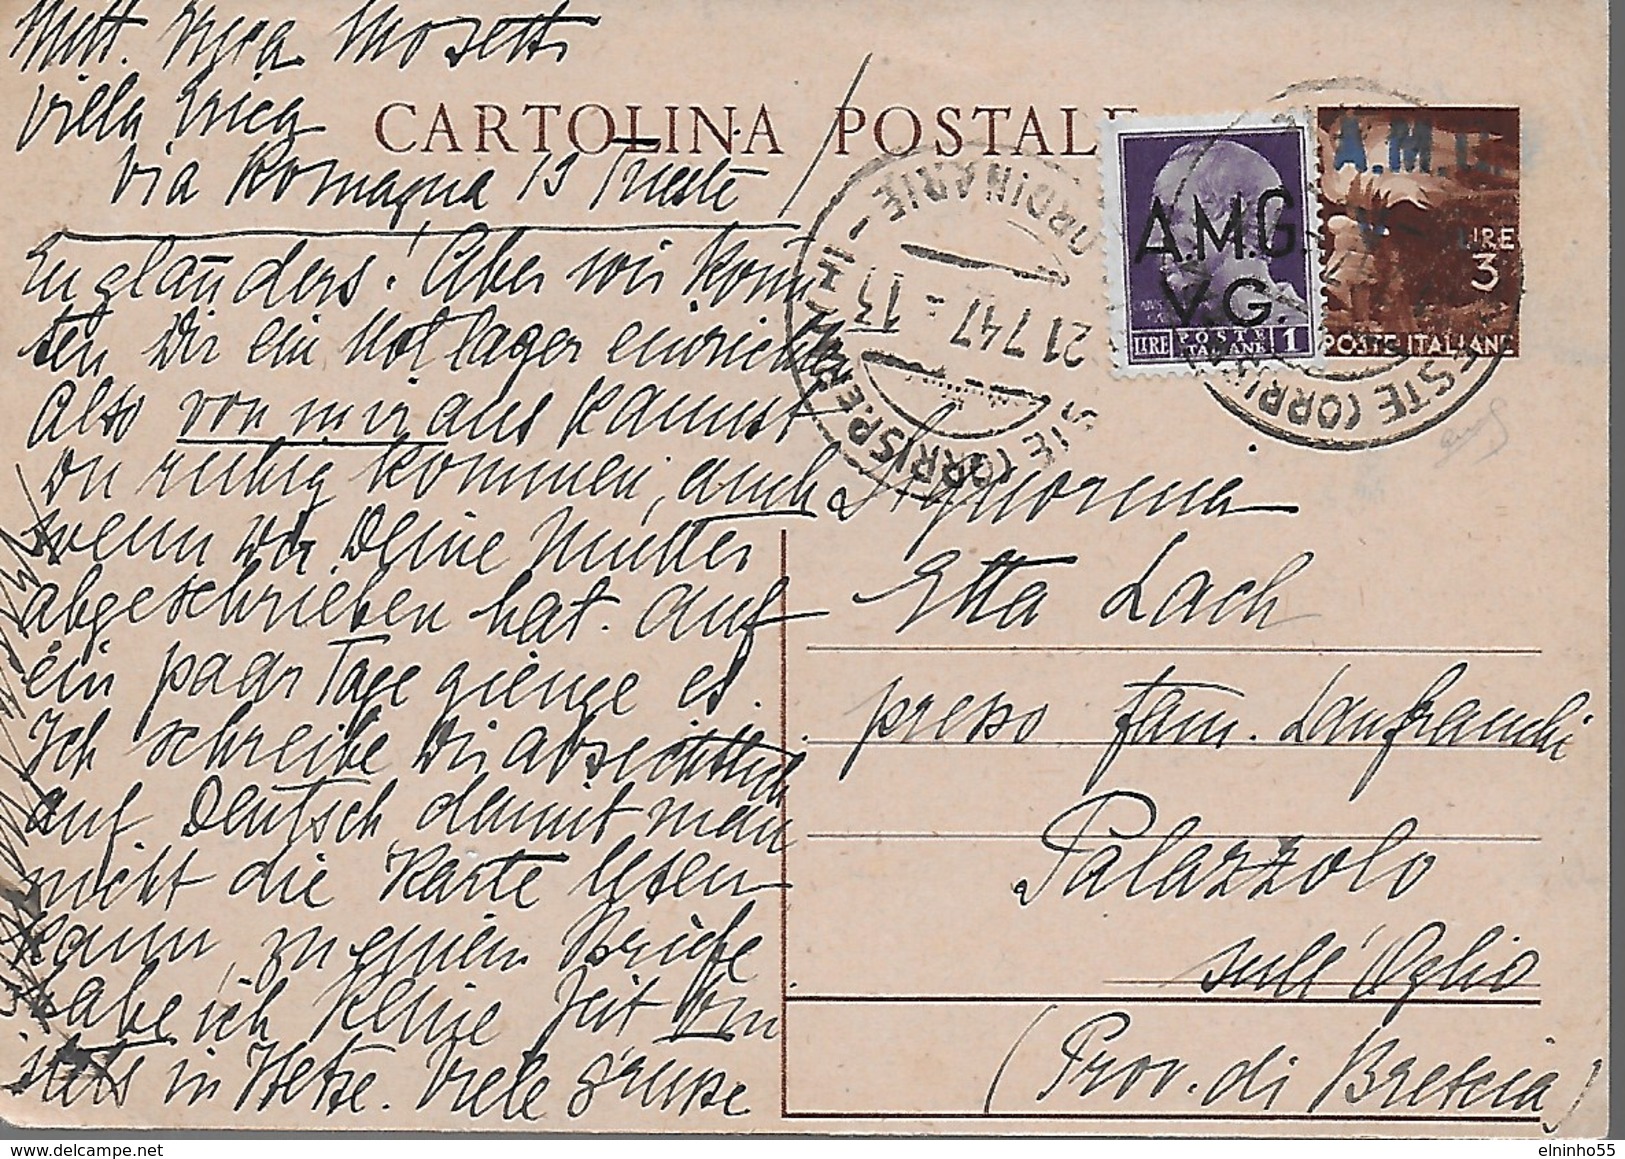 Mitt. Mosetti
Villa Erica
Via Romagna 13 Trieste
CARTOLINA POSTALE
A.M.G.
V.G.
LIRE POSTE ITALIANE 1
A.M.G.
V
LIRE
3
POSTE ITALIANE
ORDINARIE
21 7 47 - 13
Engländers! Aber wir könn
ten Dir ein Notlager einrichten
Also von mir aus kannst
Du ruhig kommen, auch
wenn Dir Deine Mutter
abgeschrieben hat. Auf
ein paar Tage gienge es.
Ich schreibe Dir absichtlich
auf Deutsch damit man
nicht die Karte lesen
kann, zu einem Briefe
habe ich keine Zeit bin
stets in Hetze. Viele Grüsse
Signorina
Etta Lach
presso fam. Lanfranchi
Palazzolo
sull'Oglio
(Prov. di Brescia)
elninho55
delcampe.net